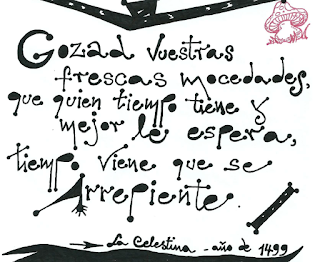 Gozad vuestras
frescas mocedades,
que quien tiempo tiene y
mejor le espera,
tiempo viene que se
Arrepiente.
La Celestina - año de 1499